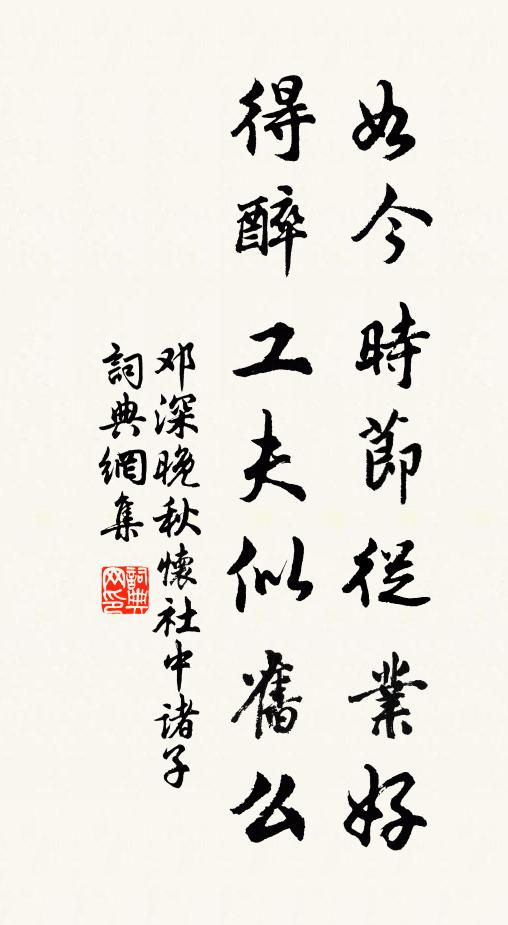 如今時節從業好
得醉工夫似舊么
邓深晚秋懷社中諸子
詞典網集
詞典网印